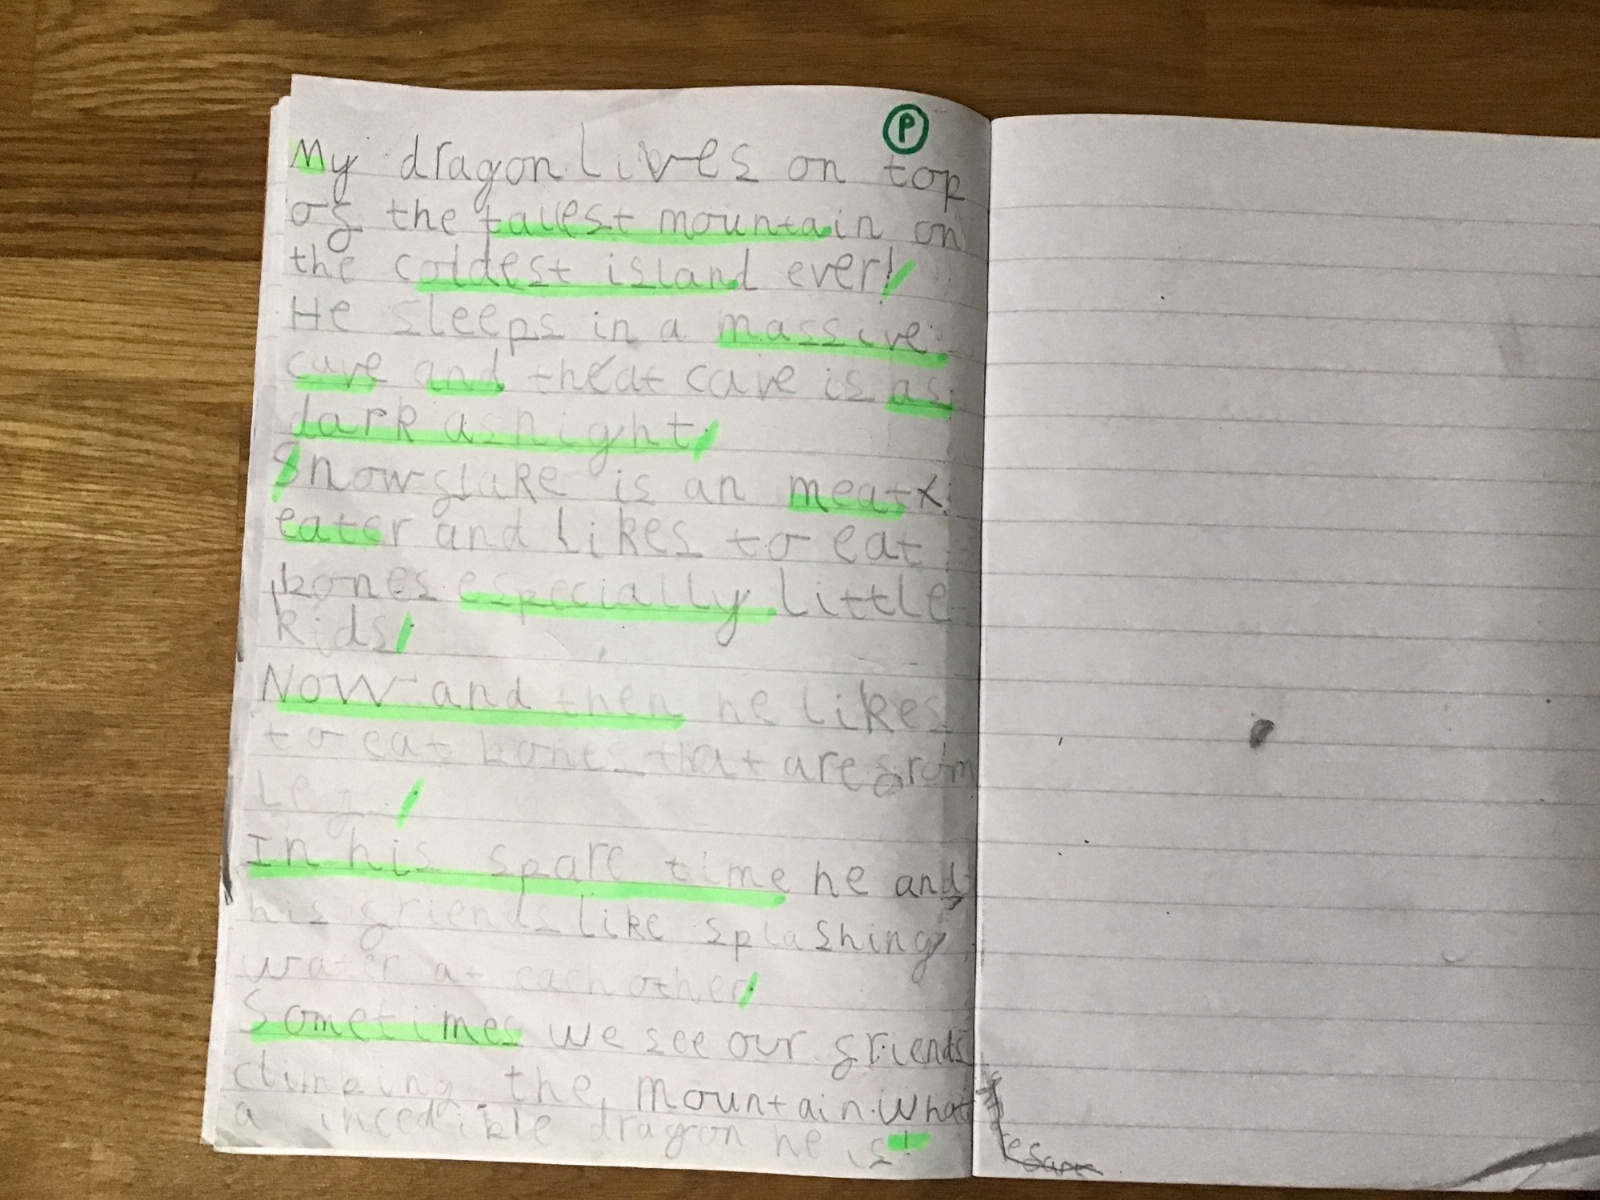 P
My dragon lives on top
of the tallest mountain on
the coldest island ever!
He sleeps in a massive
cave and theat cave is as
dark as night.
Snowflake is an meat
eater and likes to eat
bones especially little
kids.
Now and then he likes
to eat bones that are from
leg.
In his spare time he and
his friends like splashing
water at each other.
Sometimes we see our friends
climbing the mountain. What
a incedible dragon he is!